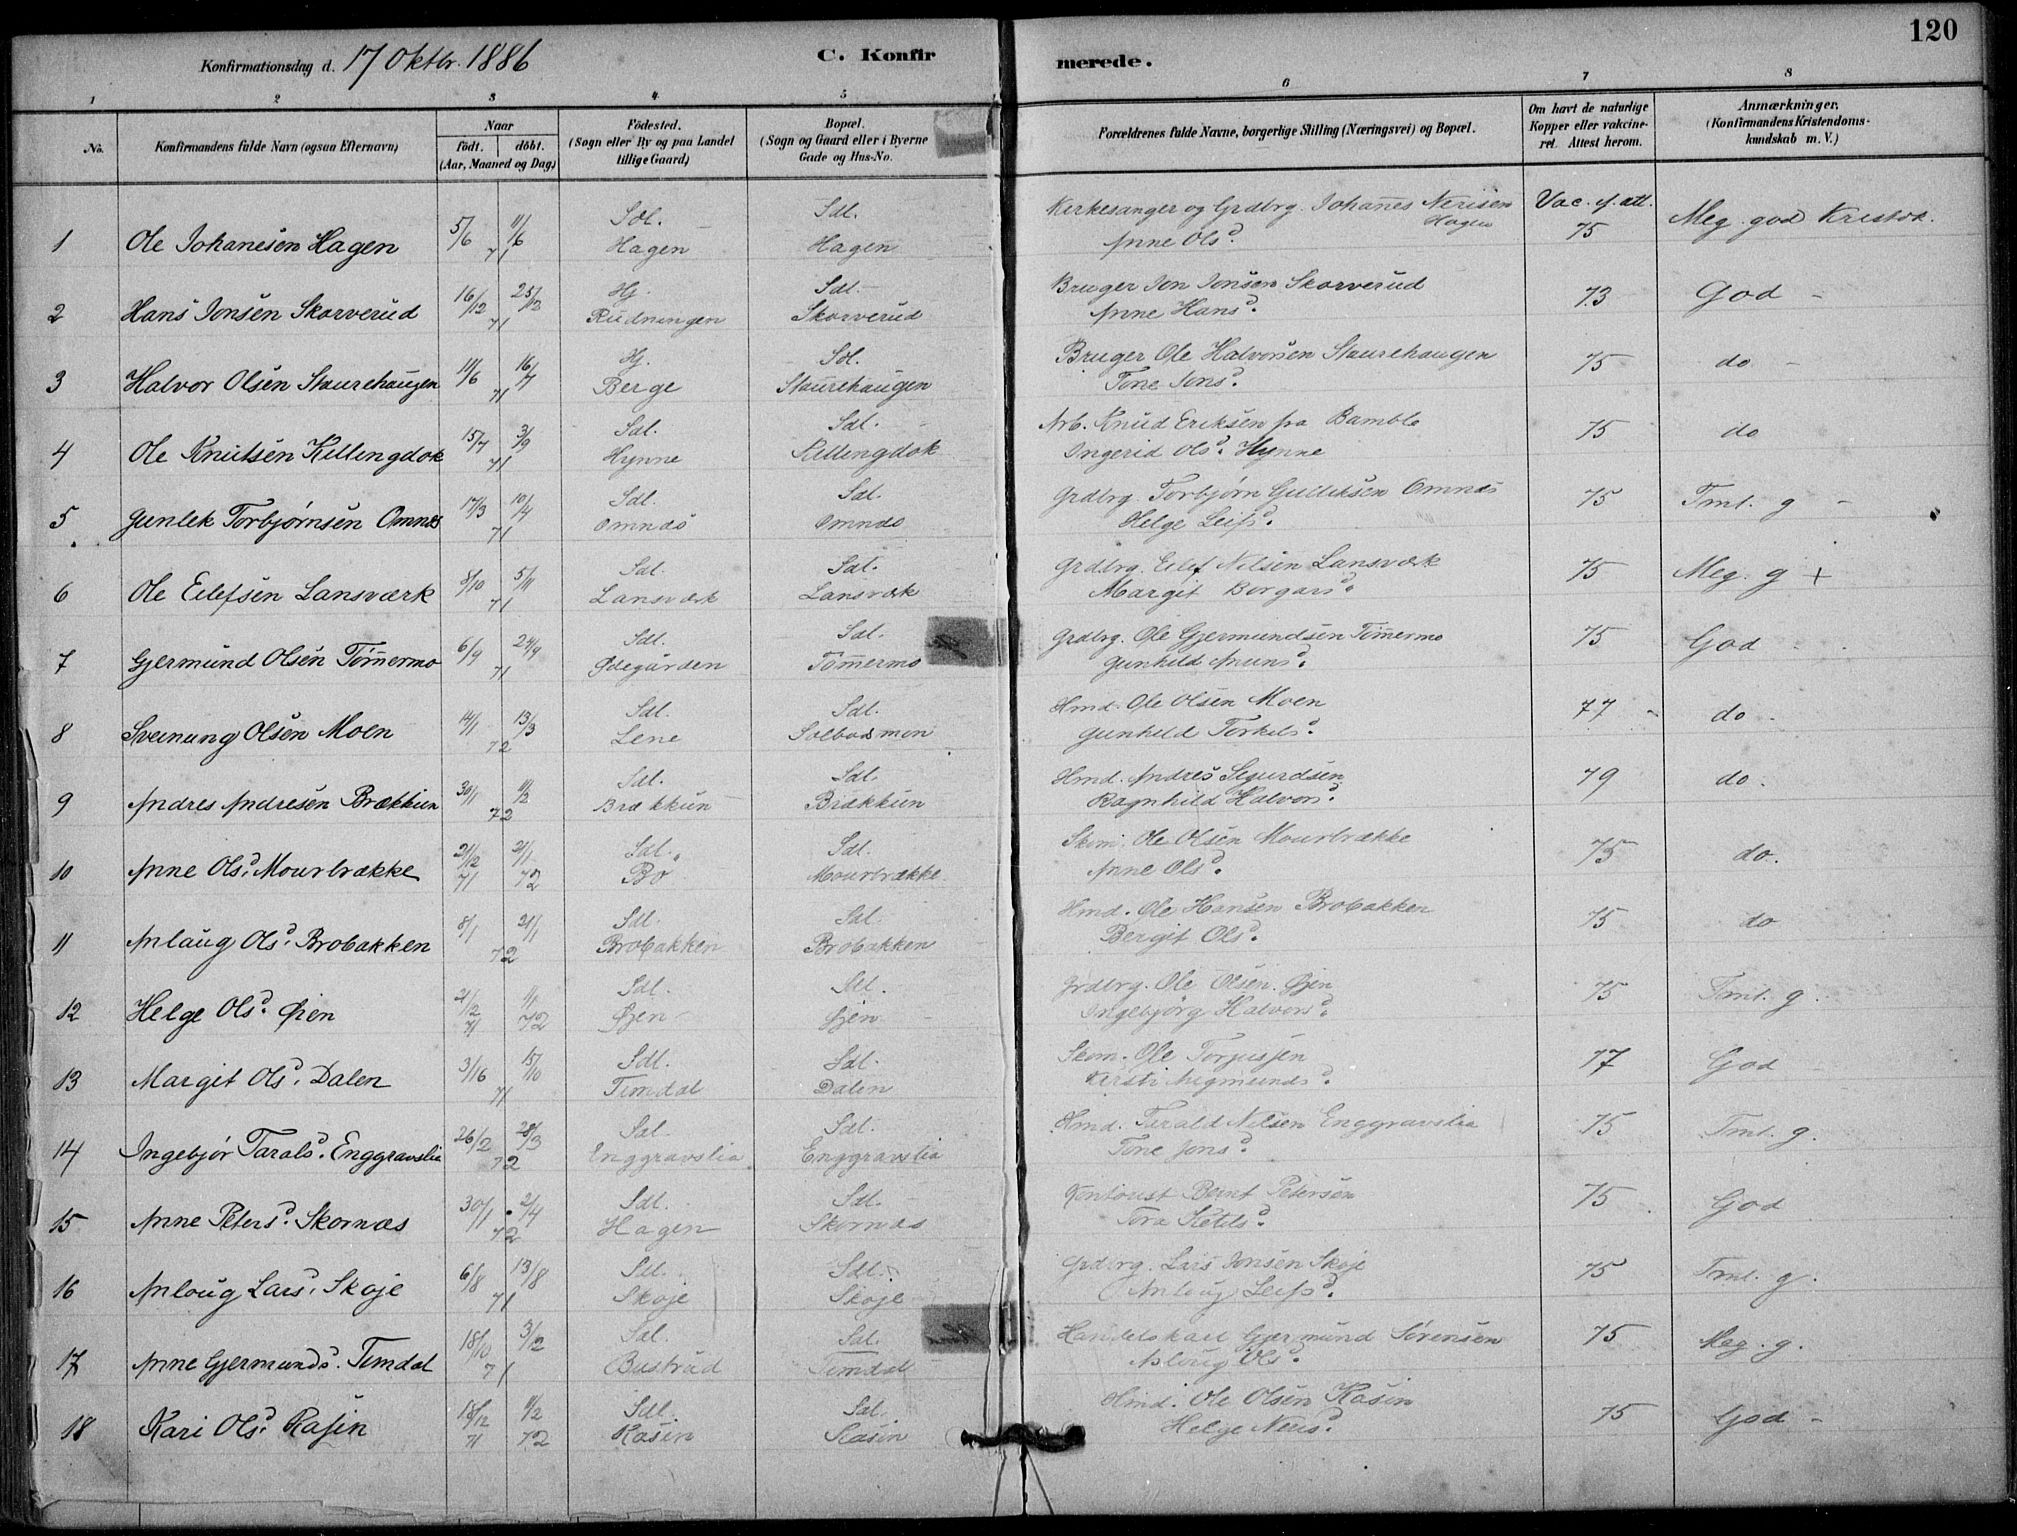 120
Konfirmationsdag d. 17 Oktbr. 1886
C. Konfirmerede.
1 2 3 4 5 6 7 8
No.
Konfirmandens fulde Navn (ogsaa Efternavn)
Naar
födt. döbt.
(Aar, Maaned og Dag)
Födested.
(Sogn eller By og paa Landet
tillige Gaard)
Bopæl.
(Sogn og Gaard eller i Byerne
Gade og Hus-No.
Forældrenes fulde Navne, borgerlige Stilling (Næringsvei) og Bopæl.
Om havt de naturlige
Kopper eller vakcine-
ret. Attest herom.
Anmærkninger.
(Konfirmandens Kristendoms-
kundskab m. V.)
Sdl. Sdl. Kirkesanger og Grdbrg. Johanes Nerisen Vac. f. att.
1 Ole Johanesen Hagen 5/6 11/6 71 Hagen Hagen Anne Olsd. Hagen 75 Meg god Kristdk.
16/12 25/12 Hj. Sdl. Bruger Jon Jonsen Skorverud
2 Hans Jonsen Skorverud 71 Rudningen Skorverud Anne Hansd. 73 God
11/6 16/7 Hj. Sdl. Bruger Ole Halvorsen Staurehaugen
3 Halvor Olsen Staurehaugen 71 Berge Staurehaugen Tone Jonsd. 75 do
15/7 3/9 Sdl. Sdl. Arb. Knud Eriksen fra Bamble
4 Ole Knutsen Killingdok 71 Hynne Killingdok Ingerid Olsd. Hynne 75 do
17/3 10/4 Sdl. Sdl. Grdbrg. Torbjørn Gulliksen Omnæs
5 Gunlek Torbjørnsen Omnæs 71 Omnæs Omnæs Helge Leifsd. 75 Tml. g
8/10 5/11 Sdl. Sdl. Grdbrg. Eilef Nilsen Lansværk
6 Ole Eilefsen Lansværk 71 Lansværk Lansværk Margit Borgarsd. 75 Meg. g +
6/9 24/9 Sdl. Sdl. Grdbrg. Ole Gjermundsen Tømermo
7 Gjermund Olsen Tømermo 71 Ødegården Tømermo Gunhild Aunsd. 75 God
14/1 13/3 Sdl. Sdl. Hmd. Ole Olsen Moen
8 Sveinung Olsen Moen 72 Lene Solbodmoen Gunhild Torkilsd. 77 do
30/1 11/2 Sdl. Sdl. Hmd. Andres Sigurdsen
9 Andres Andresen Brækkun 72 Brækkun Brækkun Ragnhild Halvorsd. 79 do.
21/12 21/1 Sdl. Sdl. Skom. Ole Olsen Mourbrække
10 Anne Olsd. Mourbrække 71 72 Bø Mourbrække Anne Olsd. 75 do.
8/1 21/1 Sdl. Sdl. Hmd. Ole Hansen Brobakken
11 Anlaug Olsd. Brobakken 72 Brobakken Brobakken Bergit Olsd. 75 do
21/12 1/1 Sdl. Sdl. Grdbrg. Ole Olsen Øjen
12 Helge Olsd. Øien 71 72 Øjen Øjen Ingebjørg Halvorsd. 75 Tml. g.
3/16 15/10 Sdl. Sdl Skom. Ole Torjussen
13 Margit Olsd. Dalen 71 Timdal Dalen Kirsti Amundsd. 77 God
26/2 28/3 Sdl. Sdl. Hmd. Tarald Nilsen Enggravslia
14 Ingebjør Taralsd. Enggravslia 72 Enggravslia Enggravslia Tone Jonsd. 75 Tml. g.
30/1 2/4 Sdl. Sdl. Kontorist Bernt Petersen
15 Anne Petersd. Skornæs 72 Hagen Skornæs Tora Ketilsd. 75 God
6/8 13/8 Sdl. Sdl. Grdbrg. Lars Jonsen Skoje
16 Anloug Larsd. Skoje 71 Skoje Skoje Anloug Leifsd. 75 Tml. g.
18/10 3/12 Sdl. Sdl. Handelskarl Gjermund Sørensen
17 Anne Gjermundsd. Timdal 71 Bustrud Timdal Asloug Olsd. 75 Meg. g.
18/12 11/2 Sdl. Sdl. Hmd. Ole Olsen Kasin
18 Kari Olsd. Kasin 71 72 Kasin Kasin Helge Nerisd. 75 God